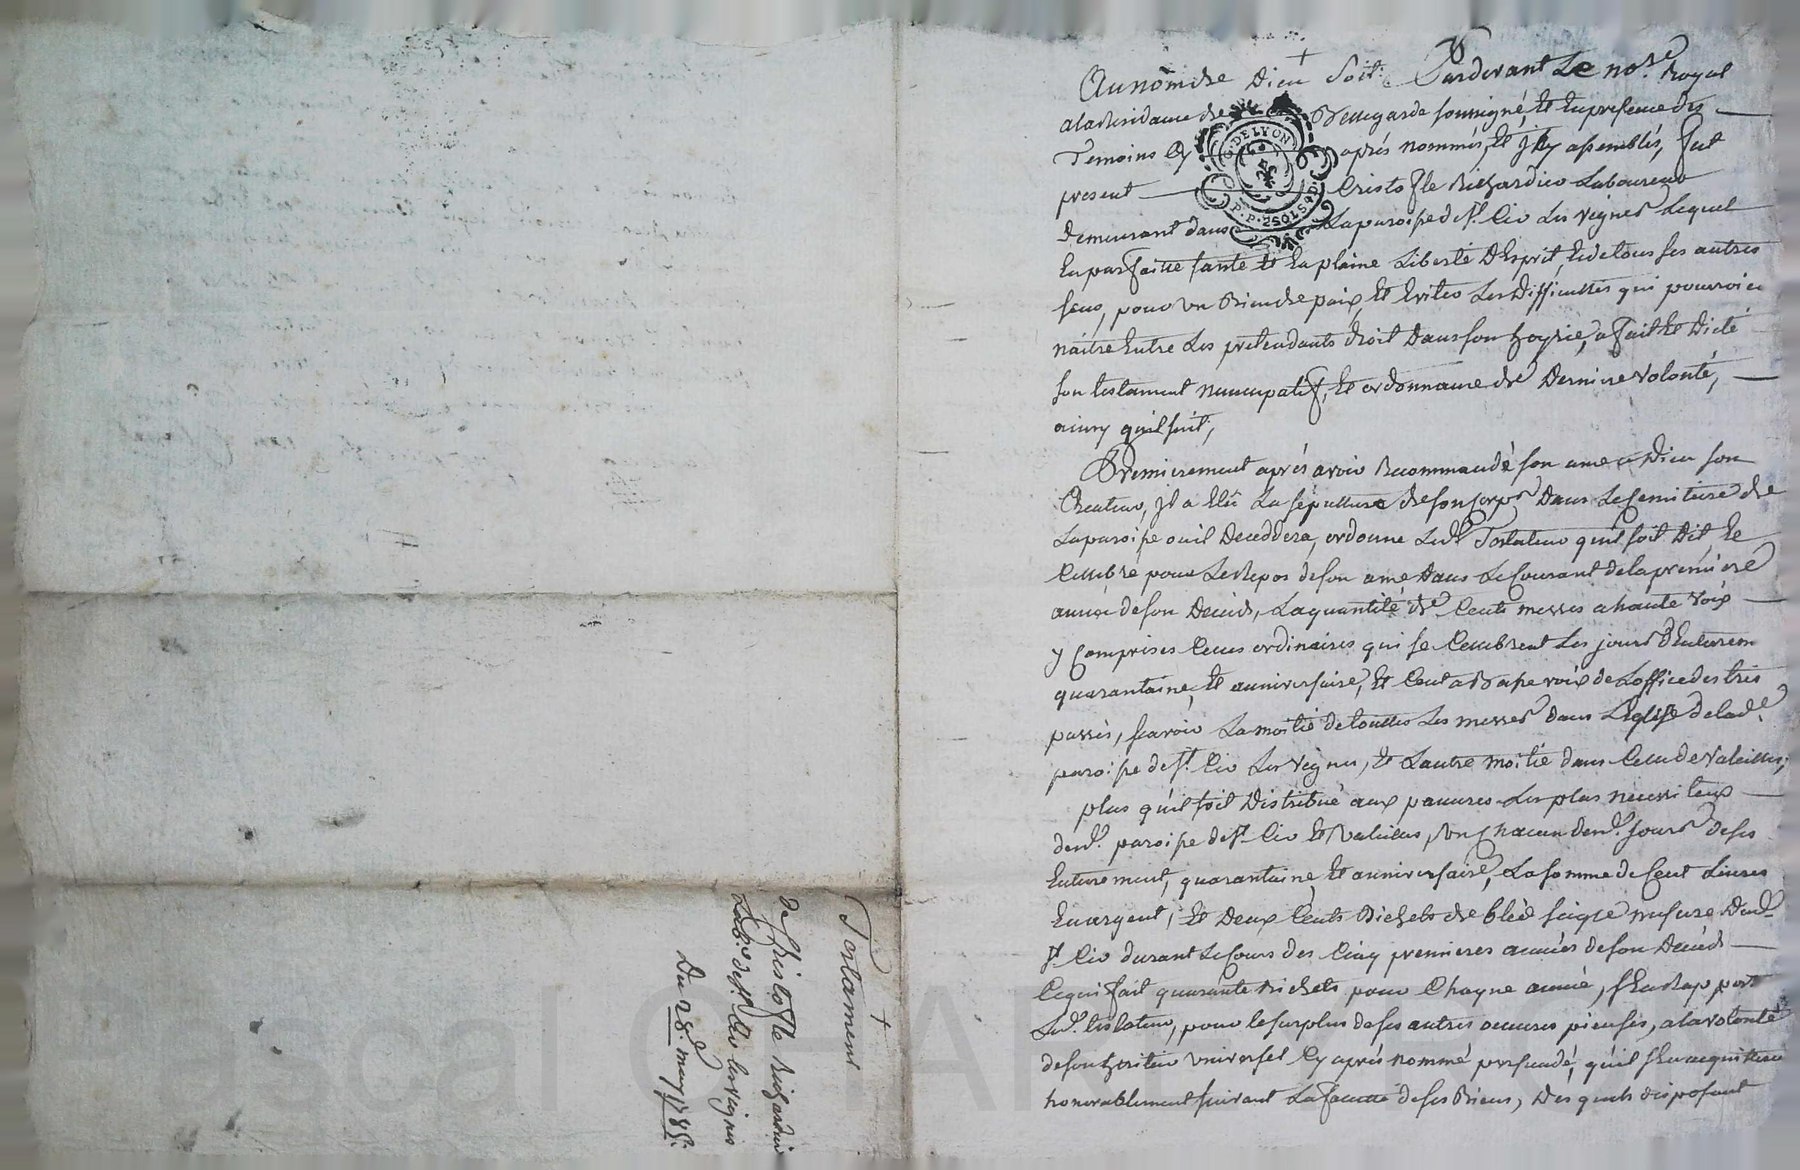 Au nom de Dieu soit. Pardevant Le no.re Royal
a la Residance de Bellegarde soussigné, et en presence des
Temoins cy après nommés, et jcy assemblés, fut
present Cristofle Richardier Laboureur
demeurant dans La paroisse de St. Cir Les vignes Lequel
en parfaitte santé et en plaine Liberté d'Esprit, et de tous ses autres
sens, pour un Bien de paix, et Eviter Les Difficultés qui pouroient
naitre Entre Les pretendants droit dans son hoyrie, a fait et Dicté
son testament nuncupatif, et ordonnance de Derniere volonté,
ainsy qu'il suit;
Premierement après avoir Recommandé son ame a Dieu son
Createur, jl a Elû La sépulture de son corps Dans Le Cemitiere de
La paroisse ou il Deceddera, ordonne Led. Testateur qu'il soit Dit et
Cellebré pour Le Repos de son ame Dans Le Courant de la première
année de son Decéds, La quantité de Cents messes a haute voix
y Comprises Celles ordinaires qui se Cellebrent Les jours d'Enterrem
quarantaine, et anniversaire, et Cent a Basse voix de L'office des tres
passés, scavoir La moitié de touttes Les messes dans L'Eglise de lad.e
paroisse de St. Cir Les vignes, et L'autre moitié dans Celle de Valeilles;
plus qu'il soit Distribué aux pauvres Les plus necessiteux
desd. paroisse de St. Cir et Valeilles, un Chacun desd. jours de ses
Enterrement, quarantaine et anniversaire, La somme de Cent Livres
En argent, et Deux Cents Bichets de bled seigle mesure Dud.
St. Cir durant Le Cours des Cinq premieres années de son Decéds
Ce qui fait quarante Bichets pour Chaque année, s'En Rapport
Led. testateur, pour le surplus de ses autres oeuvres pieuses, a la volonté
de son heritier universel Cy après nommé persuadé, qu'il s'En acquittera
honorablement suivant La faculté de ses Biens, Des quels disposant
G. DE LYON
P.P. 2 SOLS 4 D.
Testament
de Christofle Richardier
Lab.r de St. Cir les vignes
Du 28. may 1785.